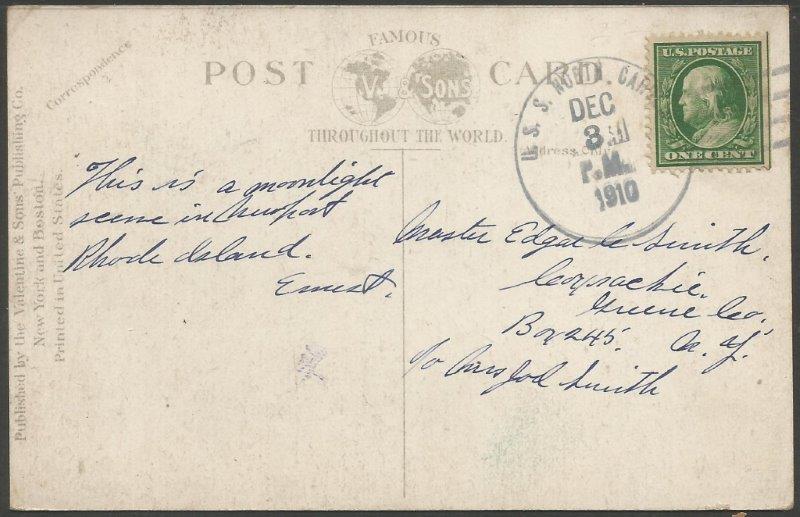 FAMOUS
POST V. & SONS CARD
THROUGHOUT THE WORLD.
Correspondence
Published by the Valentine & Sons' Publishing Co.
New York and Boston.
Printed in United States.
U. S. S. NORTH. CAR
DEC
3
P.M.
1910
U.S. POSTAGE
ONE CENT
This is a moonlight
scene in Newport
Rhode Island.
Ernest.
Master Edgar C Smith,
Coxsackie.
Greene Co.
Box 245. N. Y.
c/o Mrs Joel Smith